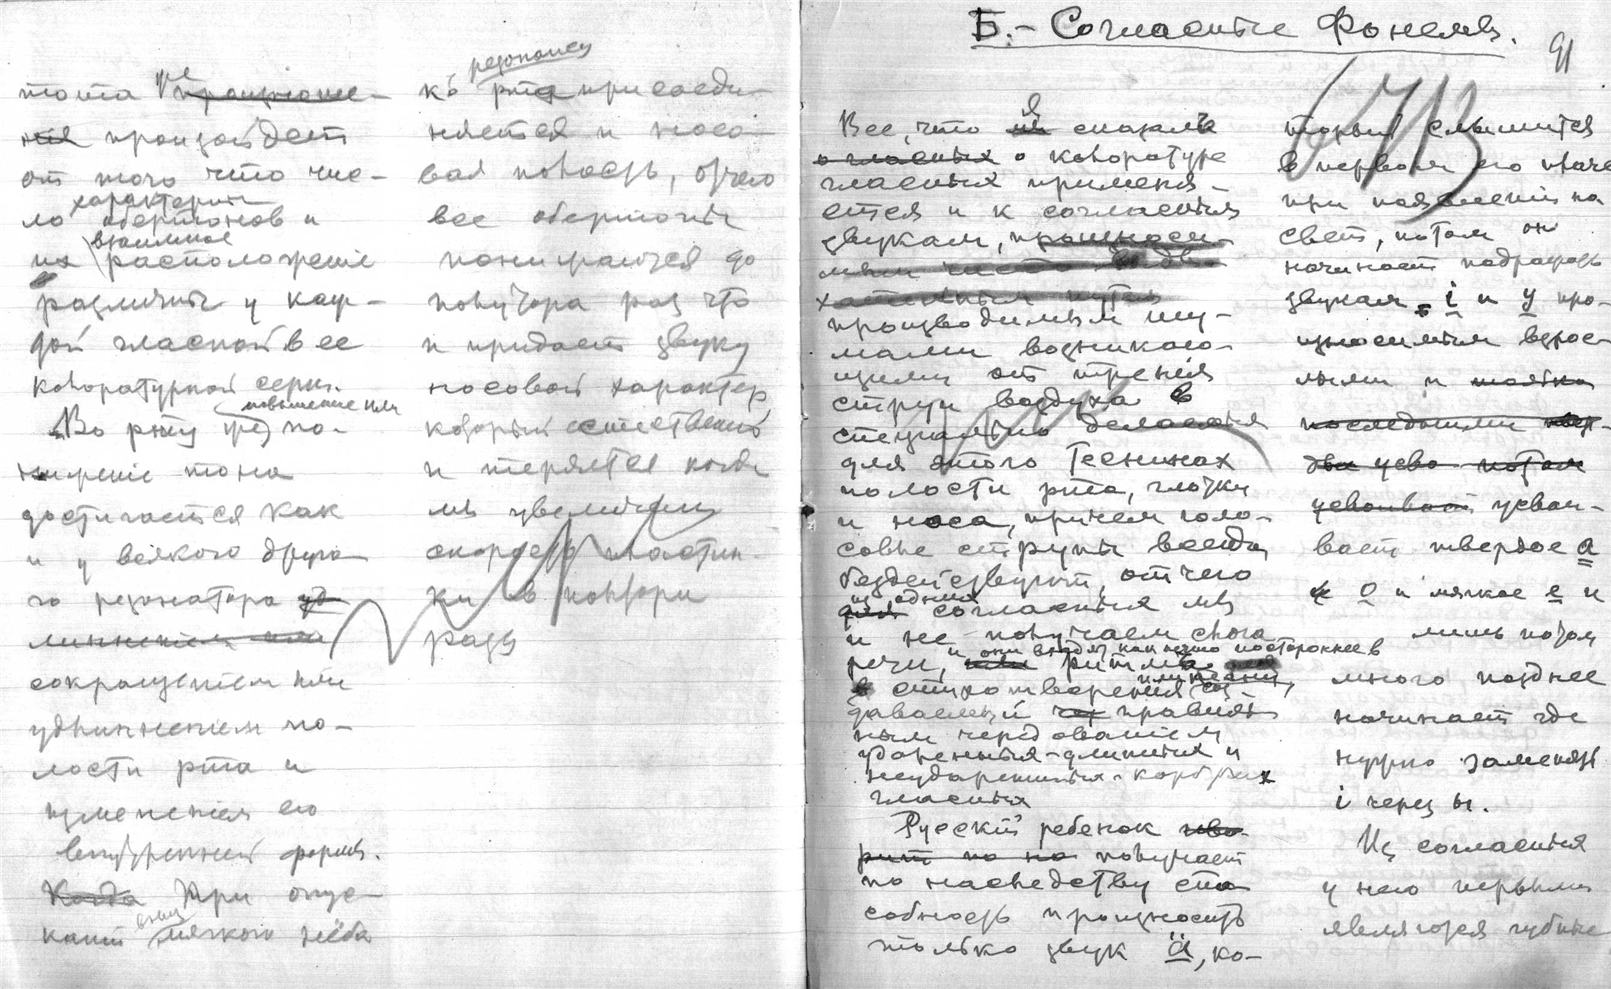 тона не произноше-
ния произойдет
от того что чис-
ло характерн. обертонов и
их взаимное расположенiе
различны у каж-
дой гласной в ее
колоратурной серiи.
Во рту же повышение или по-
ниженiе тона
достигается как
и у всякого друго
го резонатора уд
линнением или
сокращением или
удлиннением по-
лости рта и
изменением его
внутренней формы.
Когда При опус-
кании мягкого нёба
къ резонансу рта присоеди-
няется и носо-
вая полость, отчего
все обертоны
понижаются до
полутора раз что
и придает звуку
носовой характер
который естественно
и теряется когда
мы увеличим
скорость пластин-
ки в полтора
раза
Б. - Согласные Фонемы.
91
Все, что я сказалъ
о гласных о колоратуре
гласных применя-
ется и к согласным
звукам, произноси-
мым чисто
производимым шу-
мами возникаю-
щими от тренiя
струи воздуха в
специально делаемых
для этого теснинах
полости рта, глотки
и носа, причем голо-
совые струны всегда
бездействуют, отчего
из одних согласных мы
и не получаем слога
речи, и они входят как нечто постороннее в ритмъ
стихотворения или песни, соз-
даваемый правиль-
ным чередованiем
ударенных-длинных и
неударенных-коротких
гласных
Русскiй ребенок
получает
по наследству спо-
собность произносить
только звук ӓ, ко-
торый слышится
в первом его плаче
при появленiи на
свет, потом он
начинает подражать
звукам i и у про-
износимым взрос-
лыми и
последними
потом
усваивает усваи-
вает твердое а
и о и мягкое е и
лишь потом
много позднее
начинает где
нужно заменять
i через ы.
Из согласных
у него первыми
являются губные